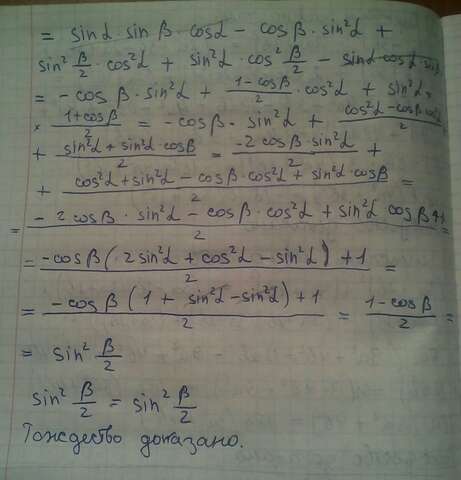 = sin α · sin β · cos α − cos β · sin² α +
sin² β/2 · cos² α + sin² α · cos² β/2 − sin α · cos α · sin β
= − cos β · sin² α + (1 − cos β)/2 · cos² α + sin² α ×
× (1 + cos β)/2 = − cos β · sin² α + (cos² α − cos β · cos² α)/2
+ (sin² α + sin² α · cos β)/2 = (−2 cos β · sin² α)/2 +
+ (cos² α + sin² α − cos β · cos² α + sin² α · cos β)/2 =
= (−2 cos β · sin² α − cos β · cos² α + sin² α cos β + 1)/2 =
= (− cos β (2 sin² α + cos² α − sin² α) + 1)/2 =
= (− cos β (1 + sin² α − sin² α) + 1)/2 = (1 − cos β)/2 =
= sin² β/2
sin² β/2 = sin² β/2
Тождество доказано.